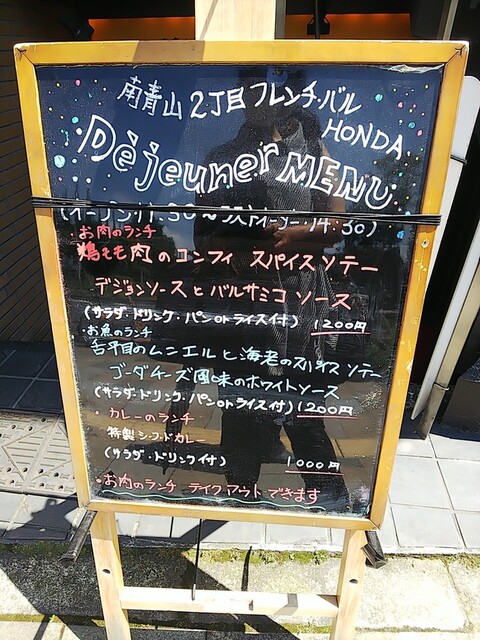 南青山2丁目フレンチ・バル
HONDA
Déjeuner MENU
(オープン11:30〜ラストオーダー14:30)
・お肉のランチ
鶏もも肉のコンフィ スパイスソテー
デジョンソースとバルサミコソース
(サラダ・ドリンク・パンorライス付) 1200円
・お魚のランチ
舌平目のムニエルと海老のスパイスソテー
ゴーダチーズ風味のホワイトソース
(サラダ・ドリンク・パンorライス付) 1200円
・カレーのランチ
特製シーフードカレー
(サラダ・ドリンク付) 1000円
・お肉のランチ テイクアウトできます